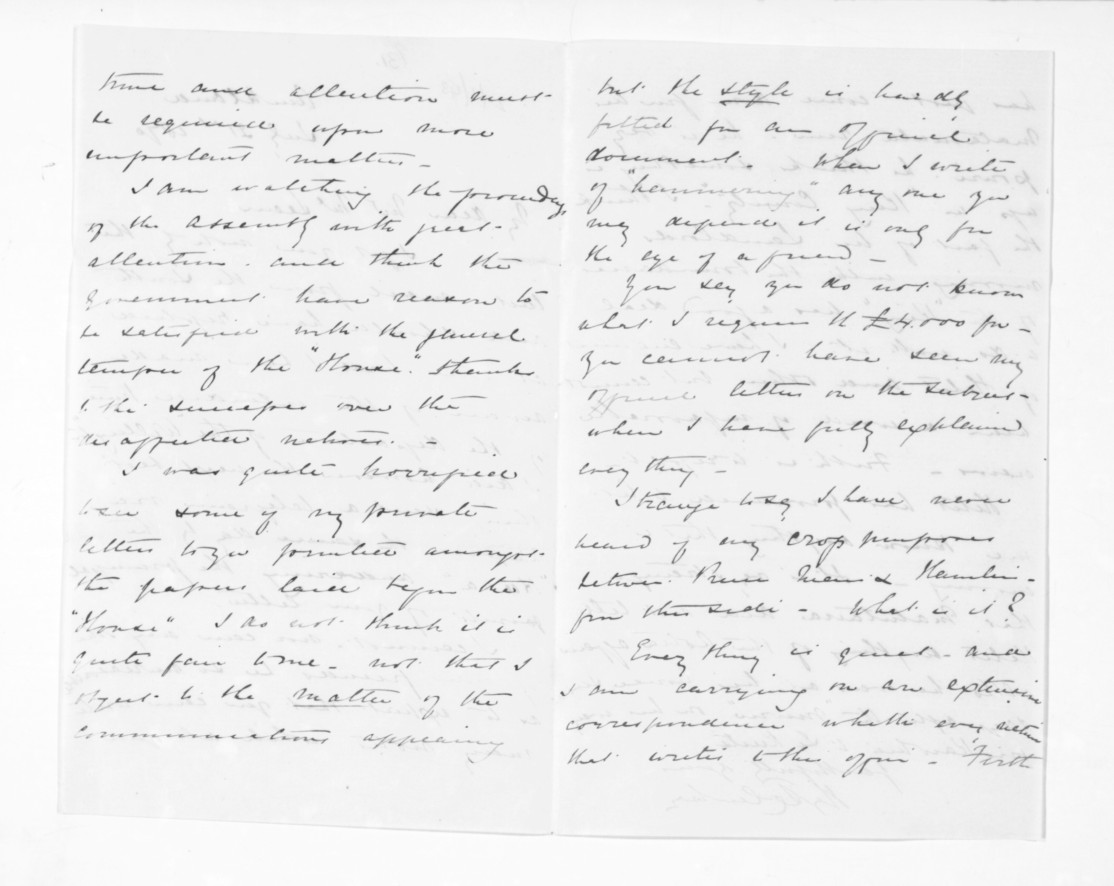 time and attention must
be required upon more
important matters -
I am watching the proceedings
of the Assembly with great
attention and think the
Government have reason to
be satisfied with the general
temper of the "House". thanks
to the successes over the
disaffected natives. -
I was quite horrified
to see some of my private
letters to you printed amongst
the papers laid before the
"House" I do not think it is
quite fair to me - not that I
object to the matter of the
communications appearing
but the style is hardly
fitted for an official
document. When I write
of "hammering" any one you
may depend it is only for
the eye of a friend -
You say you do not know
what I require the £4.000 for -
you cannot have seen my
official letters on the subject -
when I have fully explained
everything -
Strange to say I have never
heard of any cross purposes
between & Hamlin -
from this side - What is it?
Everything is quiet - and
I am carrying on an extensive
correspondence with every native
that writes to the office - Firth